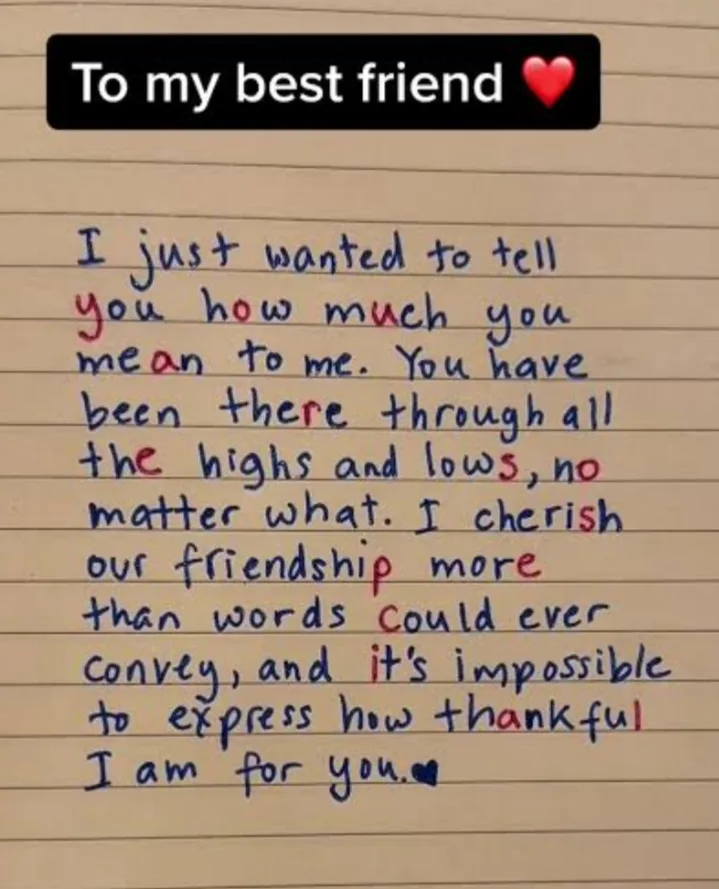 To my best friend ❤️
I just wanted to tell
you how much you
mean to me. You have
been there through all
the highs and lows, no
matter what. I cherish
our friendship more
than words could ever
convey, and it's impossible
to express how thankful
I am for you.♥